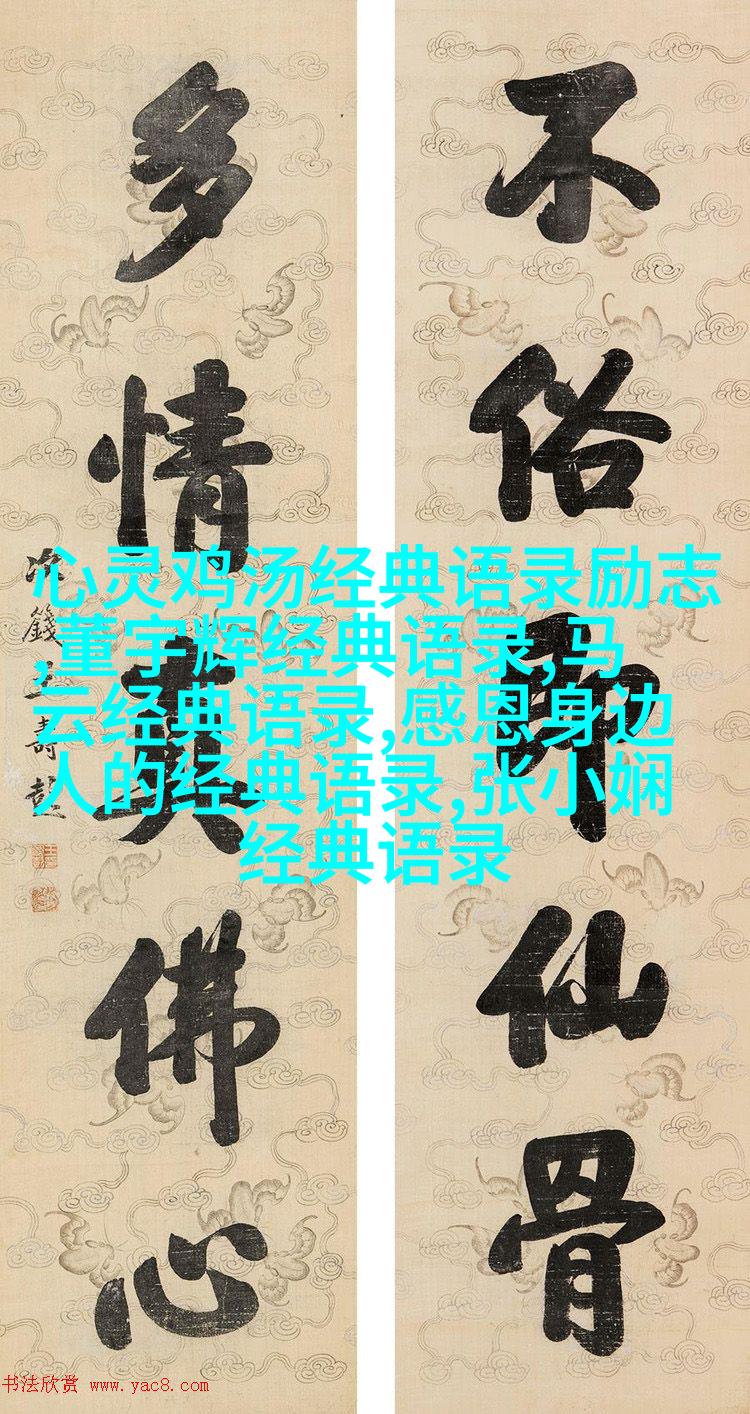 不俗即仙骨
多情真佛心
冷籛王壽彭
心灵鸡汤经典语录励志
,董宇辉经典语录,马
云经典语录,感恩身边
人的经典语录,张小娴
经典语录
书法欣赏 www.yac8.com